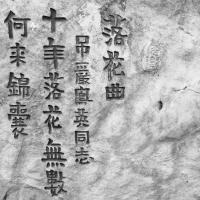 落花曲
吊嚴寄英同志
十年落花無數
何來錦囊